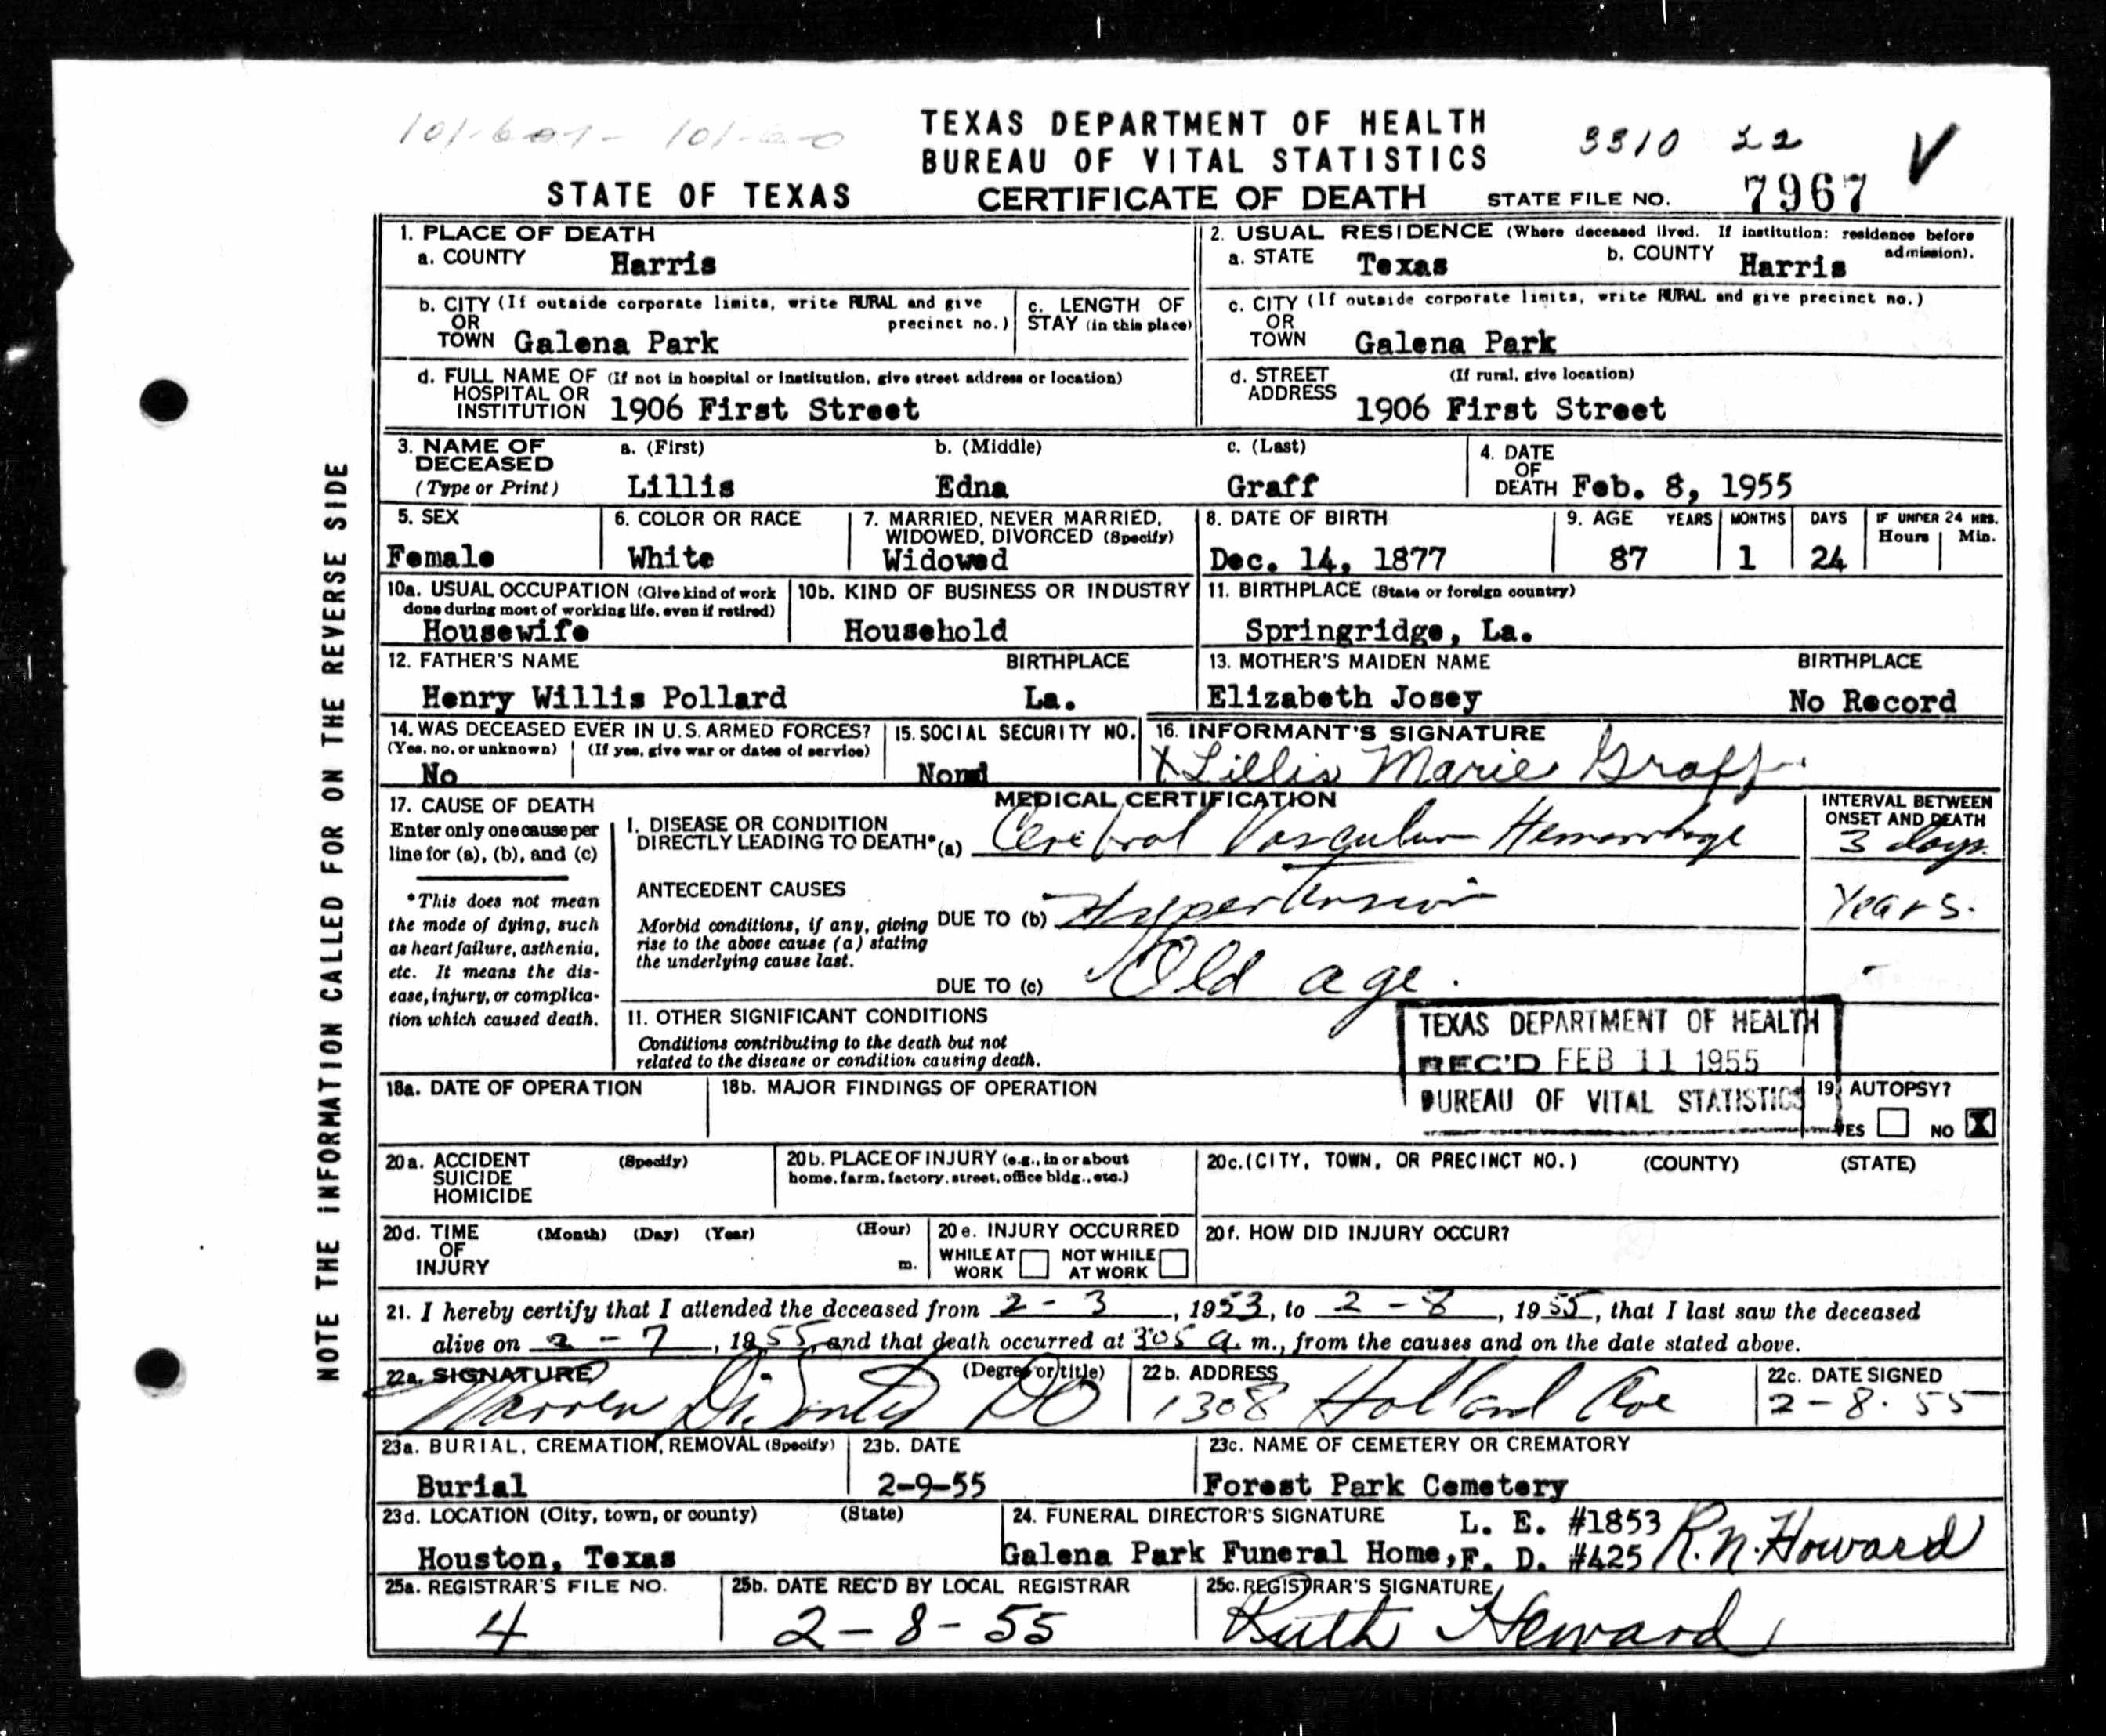 TEXAS DEPARTMENT OF HEALTH
BUREAU OF VITAL STATISTICS
3310 22 V
STATE OF TEXAS CERTIFICATE OF DEATH STATE FILE NO. 7967
NOTE THE INFORMATION CALLED FOR ON THE REVERSE SIDE
1. PLACE OF DEATH
a. COUNTY Harris
2. USUAL RESIDENCE (Where deceased lived. If institution: residence before admission).
a. STATE Texas b. COUNTY Harris
b. CITY (If outside corporate limits, write RURAL and give precinct no.)
OR TOWN Galena Park
c. LENGTH OF STAY (in this place)
c. CITY (If outside corporate limits, write RURAL and give precinct no.)
OR TOWN Galena Park
d. FULL NAME OF HOSPITAL OR INSTITUTION (If not in hospital or institution, give street address or location)
1906 First Street
d. STREET ADDRESS (If rural, give location)
1906 First Street
3. NAME OF DECEASED (Type or Print)
a. (First) b. (Middle) c. (Last)
Lillis Edna Graff
4. DATE OF DEATH Feb. 8, 1955
5. SEX
Female
6. COLOR OR RACE
White
7. MARRIED, NEVER MARRIED, WIDOWED, DIVORCED (Specify)
Widowed
8. DATE OF BIRTH
Dec. 14, 1877
9. AGE YEARS MONTHS DAYS IF UNDER 24 HRS. Hours Min.
87 1 24
10a. USUAL OCCUPATION (Give kind of work done during most of working life, even if retired)
Housewife
10b. KIND OF BUSINESS OR INDUSTRY
Household
11. BIRTHPLACE (State or foreign country)
Springridge, La.
12. FATHER'S NAME BIRTHPLACE
Henry Willis Pollard La.
13. MOTHER'S MAIDEN NAME BIRTHPLACE
Elizabeth Josey No Record
14. WAS DECEASED EVER IN U.S. ARMED FORCES?
(Yes, no, or unknown) (If yes, give war or dates of service)
No
15. SOCIAL SECURITY NO.
16. INFORMANT'S SIGNATURE
X Lillis Marie Graff
17. CAUSE OF DEATH
Enter only one cause per
line for (a), (b), and (c)
*This does not mean
the mode of dying, such
as heart failure, asthenia,
etc. It means the dis-
ease, injury, or complica-
tion which caused death.
MEDICAL CERTIFICATION
INTERVAL BETWEEN ONSET AND DEATH
I. DISEASE OR CONDITION
DIRECTLY LEADING TO DEATH* (a) Cerebral Vascular Hemorrhage 3 days.
ANTECEDENT CAUSES
Morbid conditions, if any, giving
rise to the above cause (a) stating
the underlying cause last.
DUE TO (b) Hypertension Years.
DUE TO (c) Old age. -
II. OTHER SIGNIFICANT CONDITIONS
Conditions contributing to the death but not
related to the disease or condition causing death.
TEXAS DEPARTMENT OF HEALTH
REC'D FEB 11 1955
BUREAU OF VITAL STATISTICS
18a. DATE OF OPERATION
18b. MAJOR FINDINGS OF OPERATION
19. AUTOPSY?
YES NO X
20a. ACCIDENT SUICIDE HOMICIDE (Specify)
20b. PLACE OF INJURY (e.g., in or about
home, farm, factory, street, office bldg., etc.)
20c. (CITY, TOWN, OR PRECINCT NO.) (COUNTY) (STATE)
20d. TIME OF INJURY (Month) (Day) (Year) (Hour) m.
20e. INJURY OCCURRED
WHILE AT WORK NOT WHILE AT WORK
20f. HOW DID INJURY OCCUR?
21. I hereby certify that I attended the deceased from 2-3, 1953, to 2-8, 1955, that I last saw the deceased
alive on 2-7, 1955, and that death occurred at 305 a. m., from the causes and on the date stated above.
22a. SIGNATURE (Degree or title)
Warren DO
22b. ADDRESS
1308 Holland Ave
22c. DATE SIGNED
2-8-55
23a. BURIAL, CREMATION, REMOVAL (Specify)
Burial
23b. DATE
2-9-55
23c. NAME OF CEMETERY OR CREMATORY
Forest Park Cemetery
23d. LOCATION (City, town, or county) (State)
Houston, Texas
24. FUNERAL DIRECTOR'S SIGNATURE L. E. #1853
Galena Park Funeral Home, F. D. #425 R.N. Howard
25a. REGISTRAR'S FILE NO.
4
25b. DATE REC'D BY LOCAL REGISTRAR
2-8-55
25c. REGISTRAR'S SIGNATURE
Ruth Howard